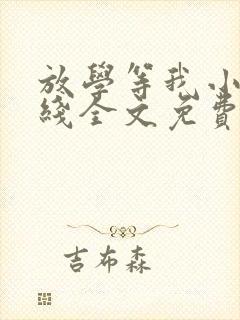 放學等我小
綫全文免費
吉布森